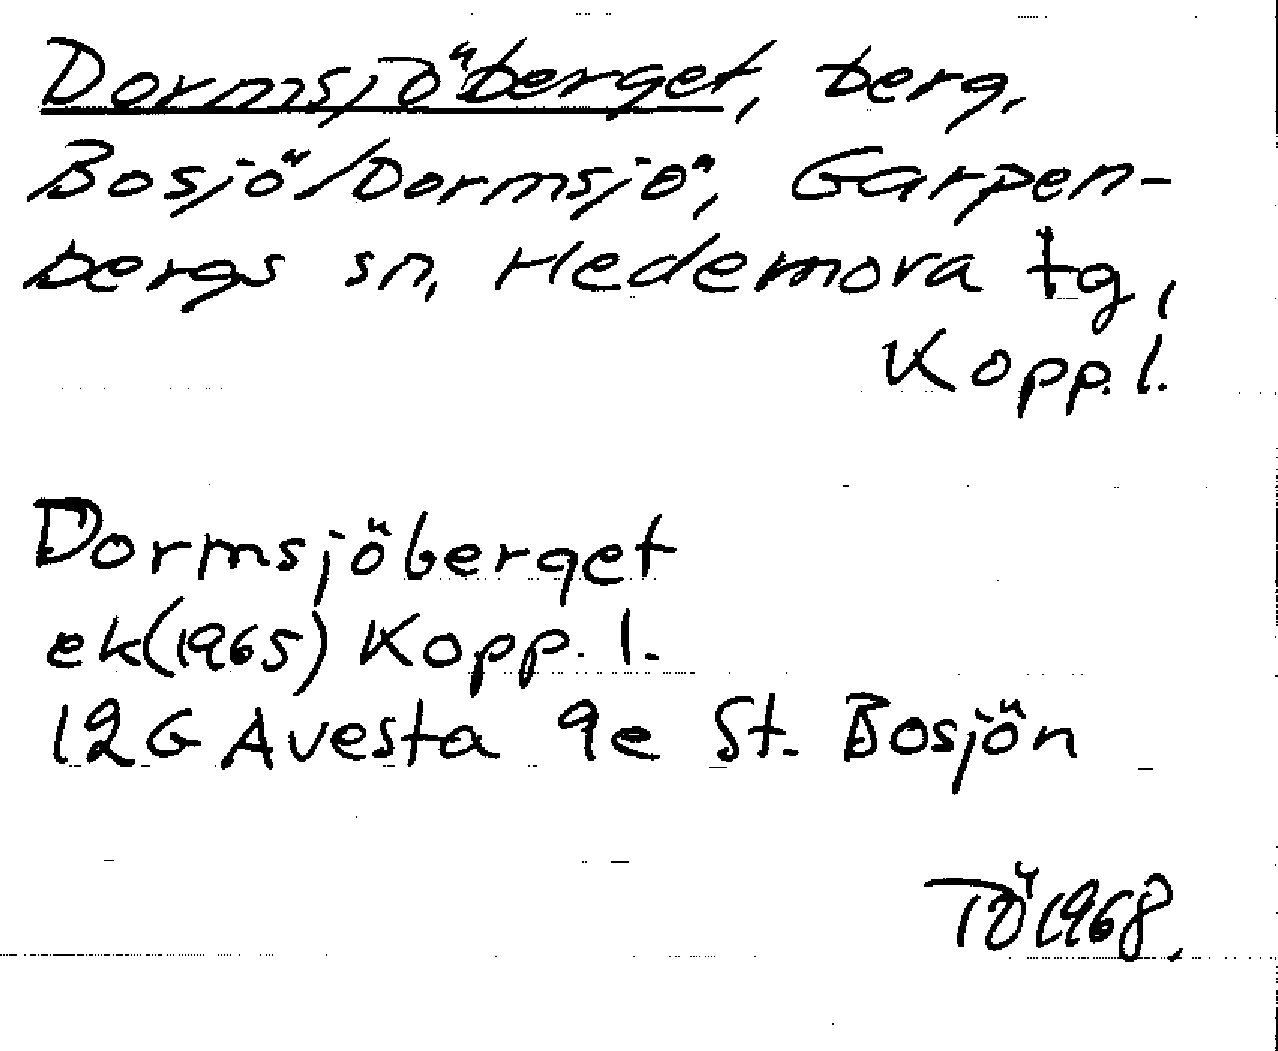 Dormsjöberget, berg,
Bosjö/Dormsjö, Garpen-
bergs sn, Hedemora tg,
Kopp. l.
Dormsjöberget
ek(1965) Kopp. l.
12G Avesta 9e St. Bosjön
TÖ 1968.